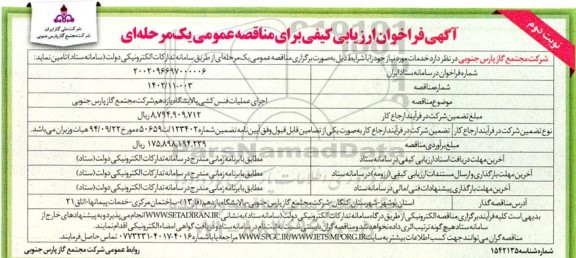 شرکت ملی گاز ایران
شرکت مجتمع گاز پارس جنوبی
نوبت دوم
آگهی فراخوان ارزیابی کیفی برای مناقصه عمومی یک مرحله‌ای
شرکت مجتمع گاز پارس جنوبی در نظر دارد خدمات مورد نیاز خود را با شرایط ذیل به صورت برگزاری مناقصه عمومی یک مرحله‌ای از طریق سامانه تدارکات الکترونیکی دولت (سامانه ستاد) تامین نماید:
شماره فراخوان در سامانه ستاد ایران ۲۰۰۲۰۹۶۶۹۷۰۰۰۰۰۶
شماره مناقصه ۱۴۰۲/۱۱-۰۰۳
موضوع مناقصه اجرای عملیات فنس کشی پالایشگاه یازدهم شرکت مجتمع گاز پارس جنوبی
مبلغ تضمین شرکت در فرآیند ارجاع کار ۸,۷۹۴,۹۰۹,۷۱۲ ریال
نوع تضمین شرکت در فرآیند ارجاع کار تضمین شرکت در فرآیند ارجاع کار به صورت یکی از تضامین قابل قبول وفق آیین نامه تضمین شماره ۱۲۳۴۰۲/ت۵۰۶۵۹ه مورخ ۹۴/۰۹/۲۲ هیات وزیران می‌باشد.
مبلغ برآوردی مناقصه ۱۷۵,۸۹۸,۱۹۴,۲۳۹ ریال
آخرین مهلت دریافت اسناد ارزیابی کیفی در سامانه ستاد مطابق با برنامه زمانی مندرج در سامانه تدارکات الکترونیکی دولت (ستاد)
آخرین مهلت بارگذاری و ارسال مستندات ارزیابی کیفی (رزومه) در سامانه ستاد مطابق با برنامه زمانی مندرج در سامانه تدارکات الکترونیکی دولت (ستاد)
آخرین مهلت بارگذاری پیشنهادات فنی / مالی در سامانه ستاد مطابق با برنامه زمانی مندرج در سامانه تدارکات الکترونیکی دولت (ستاد)
آدرس مناقصه گذار استان بوشهر، شهرستان کنگان، شرکت مجتمع گاز پارس جنوبی، پالایشگاه یازدهم (فاز ۱۳)، ساختمان مرکزی - خدمات پیمانها - اتاق ۲۱
بدیهی است کلیه فرآیند برگزاری مناقصه الکترونیکی از طریق درگاه سامانه تدارکات الکترونیکی دولت (سامانه ستاد) به نشانی WWW.SETADIRAN.IR انجام می پذیرد و به پیشنهادهای خارج از
سامانه ستاد هیچ گونه ترتیب اثری داده نخواهد شد
مناقصه گران می توانند جهت کسب اطلاعات بیشتر به سایت WWW.SPGC.IR/WWW.IETS.MPORG.IR مراجعه یا با شماره ۴۰۱۶-۴۰۱۷-۰۷۷۳۲۲۳۱ تماس حاصل فرمایند.
شماره شناسه ۱۵۴۲۱۳۵
روابط عمومی شرکت مجتمع گاز پارس جنوبی